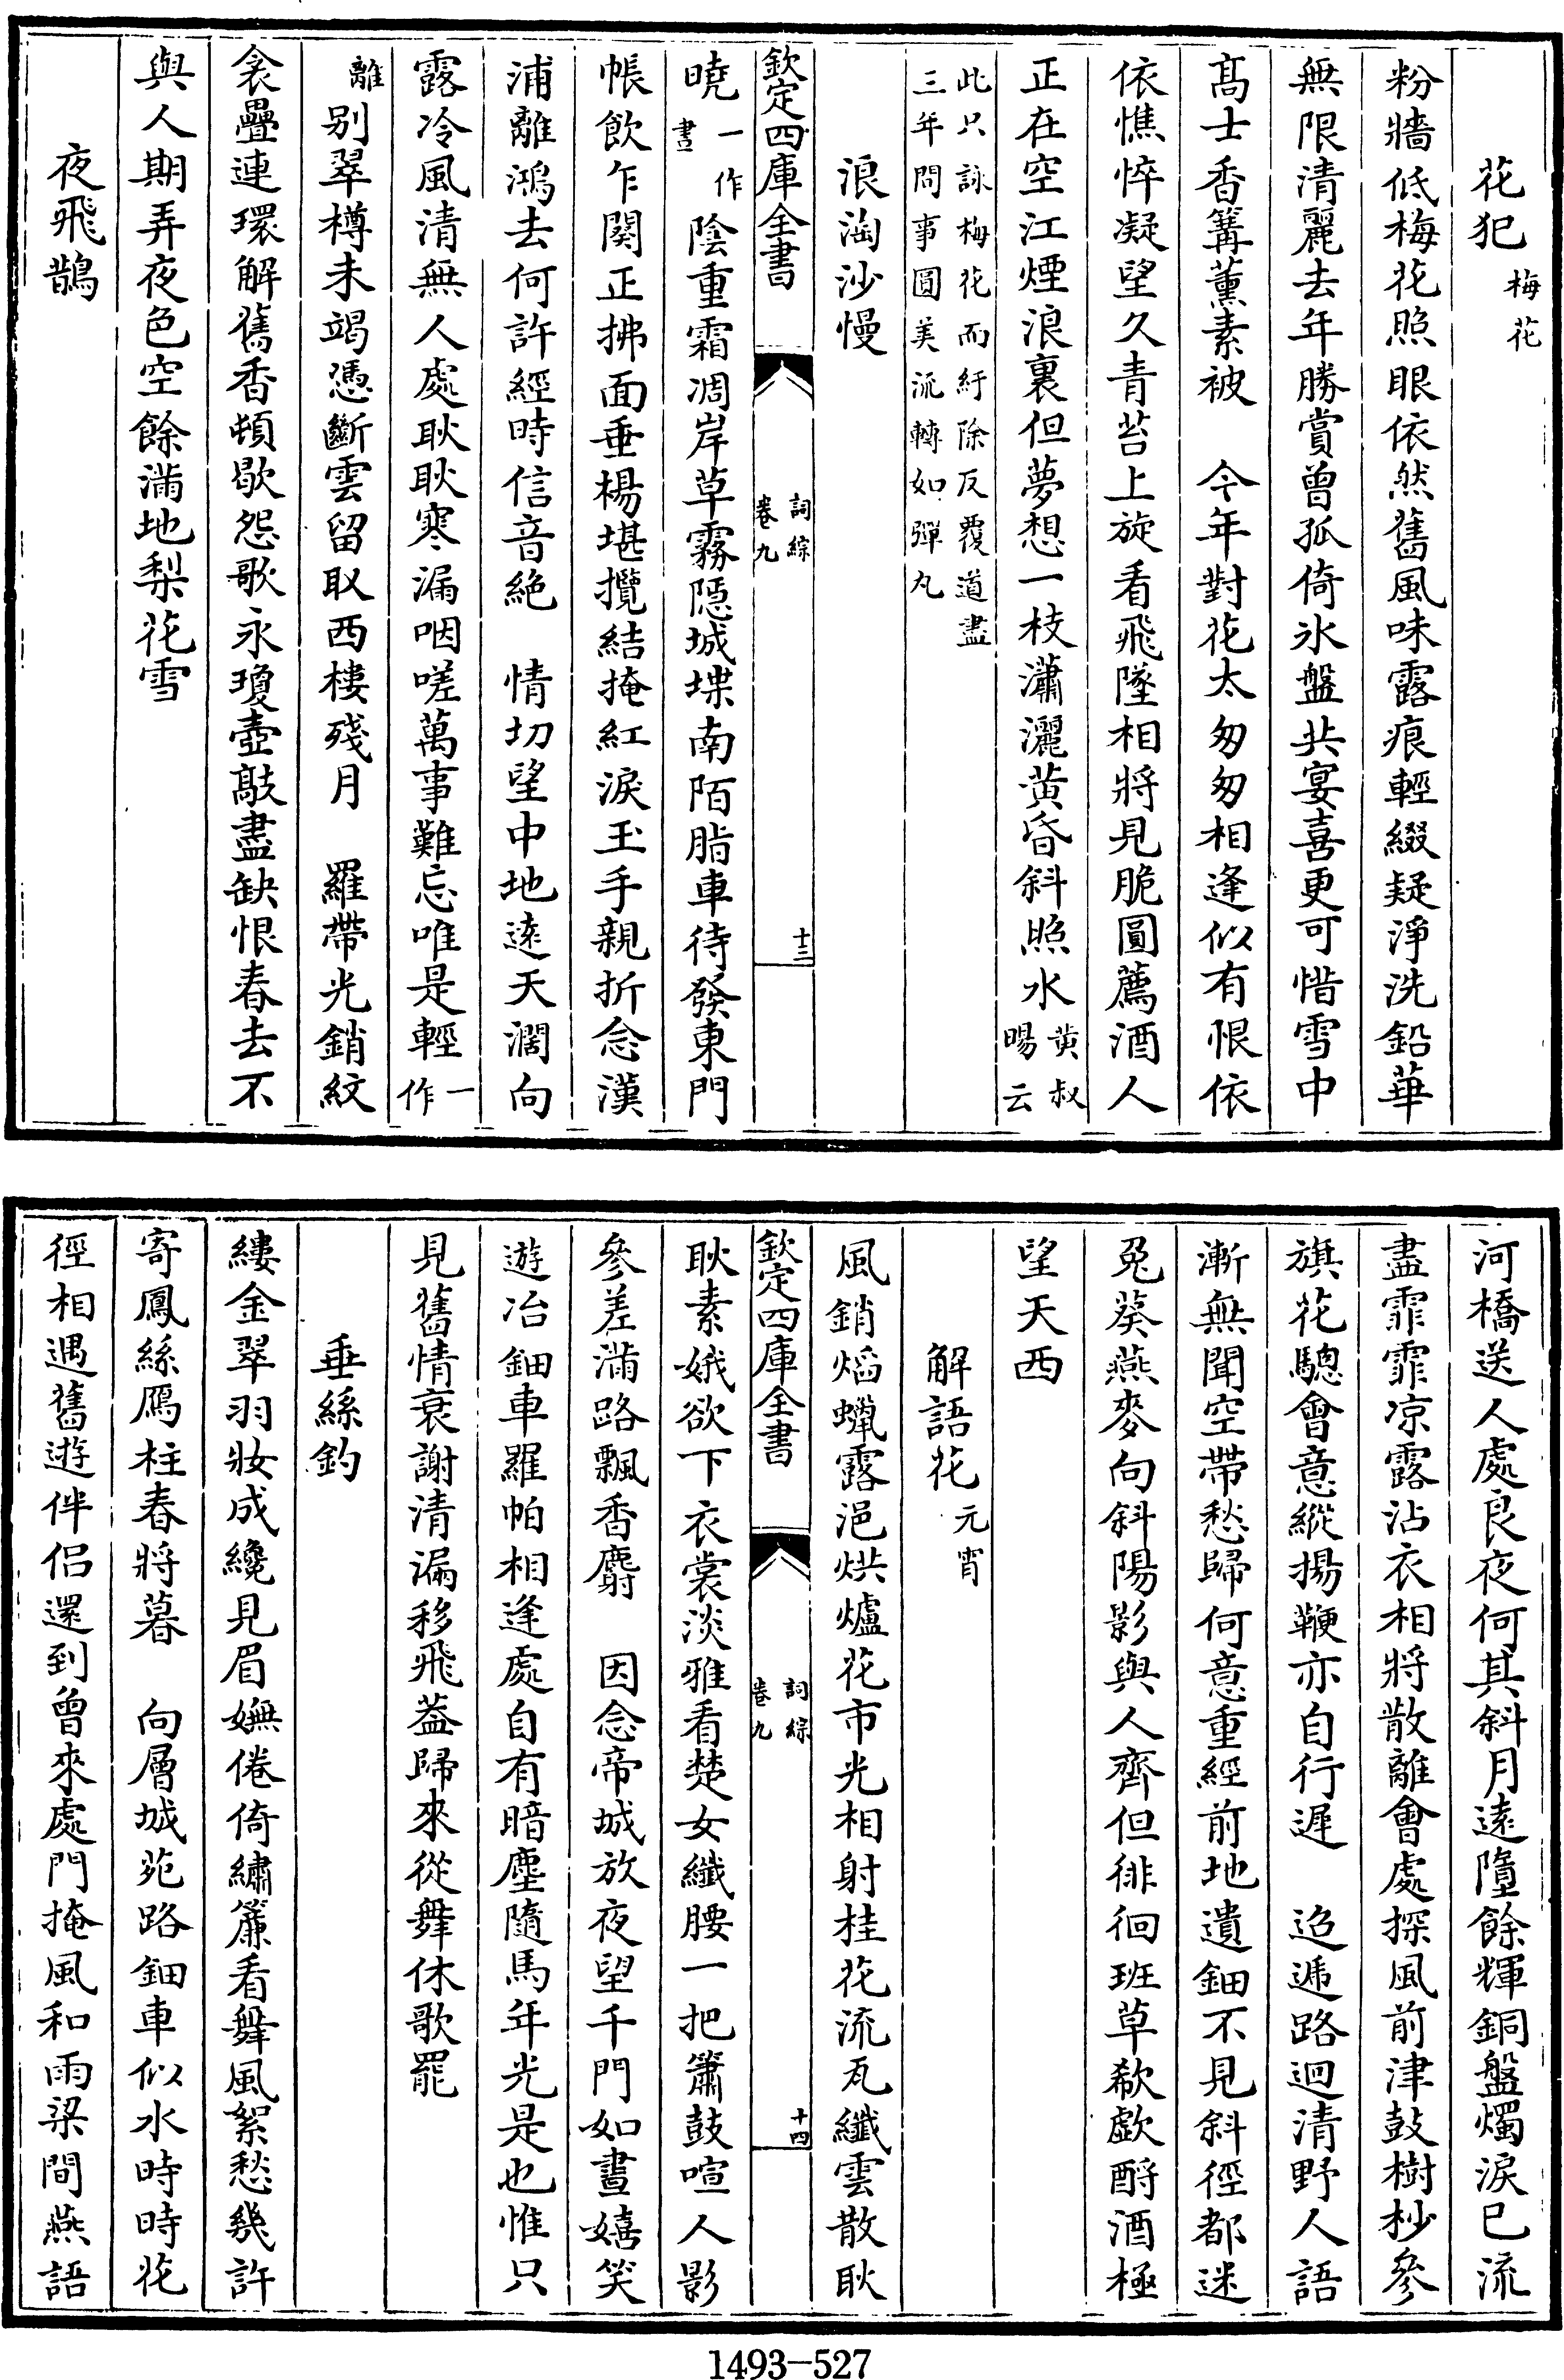 花犯梅花
粉牆低梅花照眼依然舊風味露痕輕綴疑淨洗鉛華
無限清麗去年勝賞曾孤倚氷盤共宴喜更可惜雪中
髙士香篝薰素被　今年對花太匆匆相逢似有恨依
依憔悴凝望久青苔上旋看飛墜相將見脆圓薦酒人
正在空江煙浪裏但夢想一枝瀟灑黄昏斜照水黄叔暘云
此只詠梅花而紆除反覆道盡三年間事圓美流轉如彈丸
浪淘沙慢
欽定四庫全書　詞綜卷九　十三
曉一作晝陰重霜凋岸草霧隱城堞南陌脂車待發東門
帳飲乍闋正拂面垂楊堪攬結掩紅淚玉手親折念漢
浦離鴻去何許經時信音絶　情切望中地遠天濶向
露冷風清無人處耿耿寒漏咽嗟萬事難忘唯是輕一作
離别翠樽未竭憑斷雲留取西樓殘月　羅帶光銷紋
衾疊連環解舊香頓歇怨歌永瓊壺敲盡缺恨春去不
與人期弄夜色空餘滿地梨花雪
夜飛鵲
河橋送人處良夜何其斜月遠墮餘輝銅盤燭淚已流
盡霏霏凉露沾衣相將散離會處探風前津鼓樹杪參
旗花驄會意縱揚鞭亦自行遲　迢遞路迴清野人語
漸無聞空帶愁歸何意重經前地遺鈿不見斜徑都迷
兎葵燕麥向斜陽影與人齊但徘徊班草欷歔酹酒極
望天西
解語花元宵
風銷熖蠟露浥烘爐花市光相射桂花流瓦纖雲散耿
欽定四庫全書　詞綜卷九　十四
耿素娥欲下衣裳淡雅看楚女纖腰一把簫鼓喧人影
參差滿路飄香麝　因念帝城放夜望千門如晝嬉笑
遊冶鈿車羅帕相逢處自有暗塵隨馬年光是也惟只
見舊情衰謝清漏移飛葢歸來從舞休歌罷
垂絲釣
縷金翠羽妝成纔見眉嫵倦倚繡簾看舞風絮愁幾許
寄鳳絲鴈柱春將暮　向層城苑路鈿車似水時時花
徑相遇舊遊伴侣還到曾來處門掩風和雨梁間燕語
1493—527